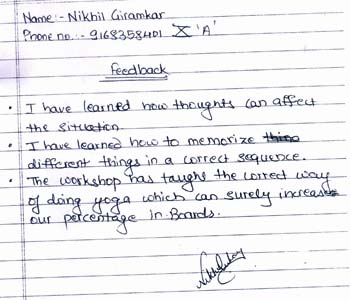 Name:- Nikhil Giramkar
Phone no.:- 9168358401 X 'A'
Feedback
• I have learned how thoughts can affect
the situation.
• I have learned how to memorize
different things in a correct sequence.
• The workshop has taught the correct way
of doing yoga which can surely increase
our percentage in Boards.